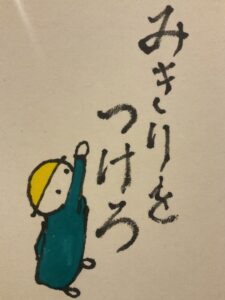 みきりを
つけろ